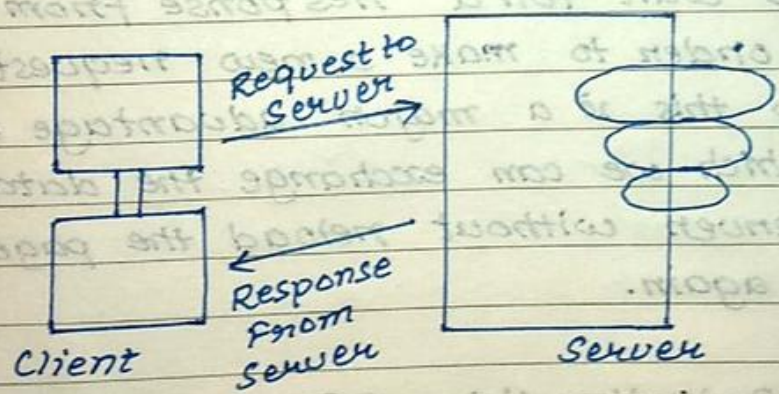 Request to
Server
Response
From
Server
Client
Server